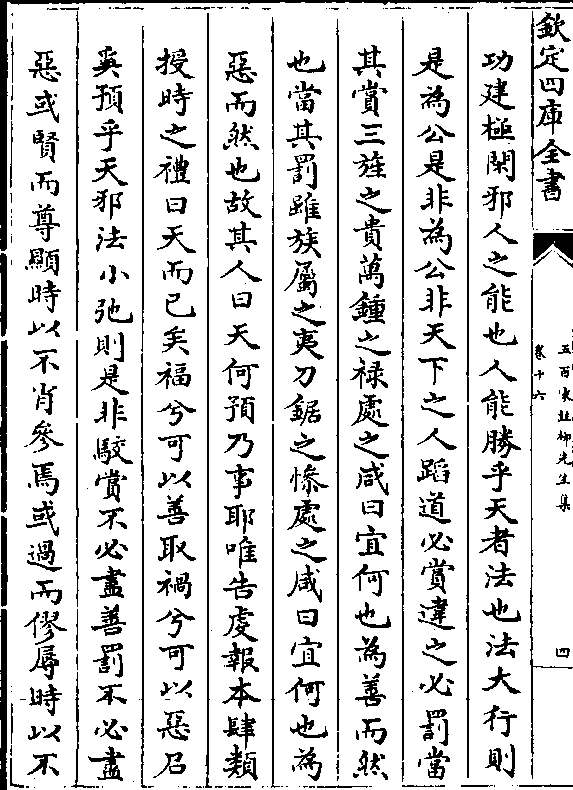 欽定四庫全書
五百家註柳先生集
卷十六
四
功建極閑邪人之能也人能勝乎天者法也法大行則
是為公是非為公非天下之人蹈道必賞違之必罰當
其賞三旌之貴萬鍾之祿處之咸曰宜何也為善而然
也當其罰雖族屬之夷刀鋸之慘處之咸曰宜何也為
惡而然也故其人曰天何預乃事耶唯告虔報本肆類
授時之禮曰天而已矣福兮可以善取禍兮可以惡召
奚預乎天邪法小弛則是非駮賞不必盡善罰不必盡
惡或賢而尊顯時以不肖參焉或過而僇辱時以不